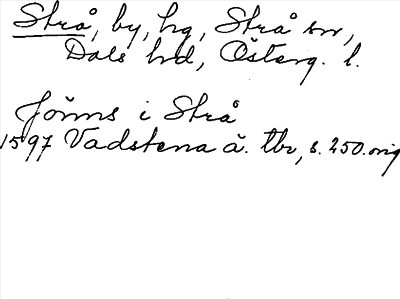 Strå, by, hg, Strå sn,
Dals hd, Österg. l.
Jörms i Strå
1597 Vadstena ä. tbr, s. 250. orig